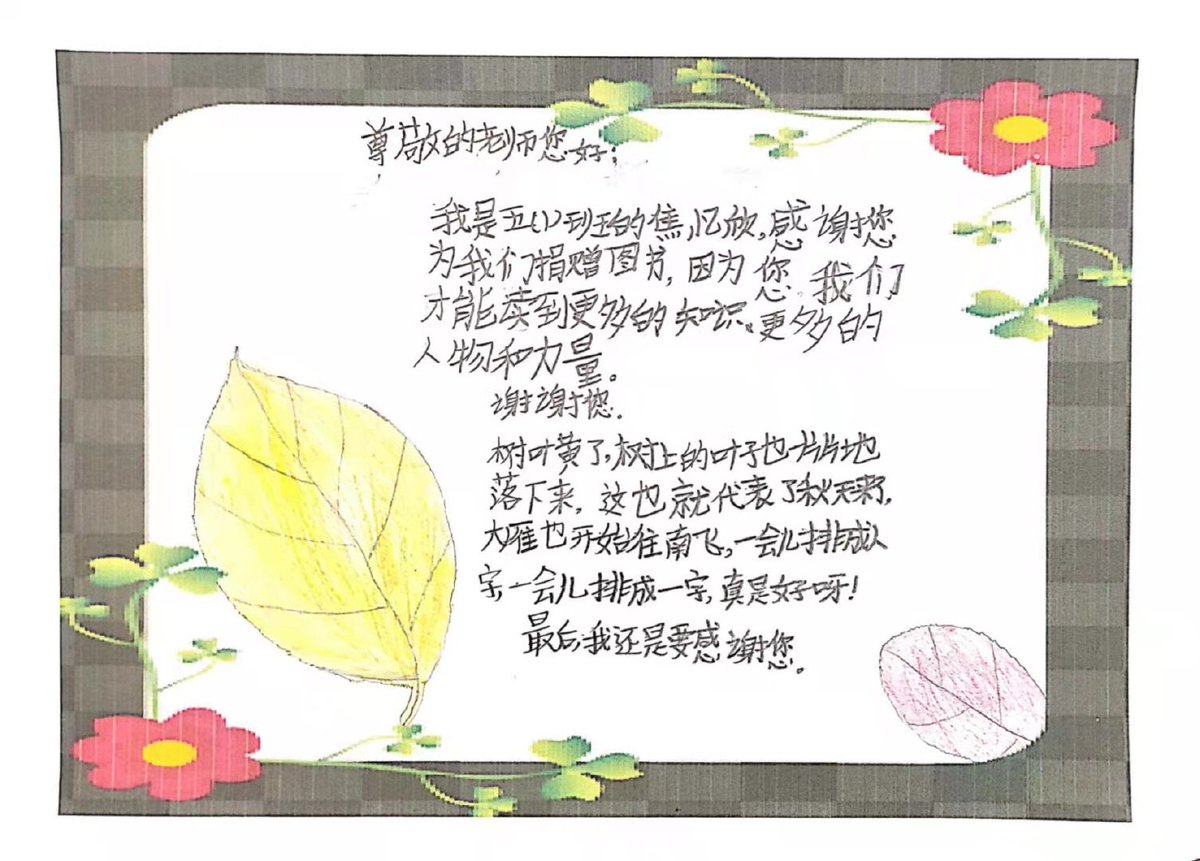 尊敬的老师您好:
我是五(1)班的焦忆欣,感谢您
为我们捐赠图书,因为您,我们
才能读到更多的知识、更多的
人物和力量。
谢谢您.
树叶黄了,树上的叶子也一片片地
落下来,这也就代表了秋天来了,
大雁也开始往南飞,一会儿排成人
字,一会儿排成一字,真是好呀!
最后,我还是要感谢您。